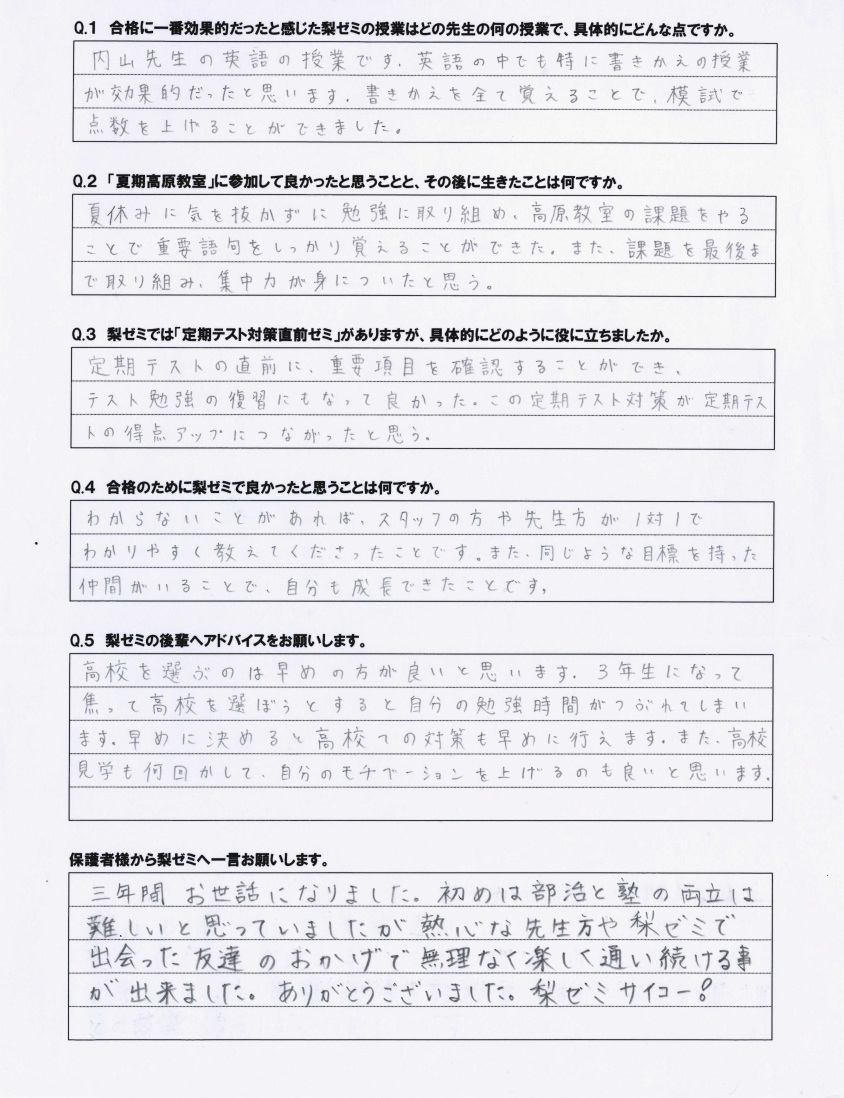 Q.1 合格に一番効果的だったと感じた梨ゼミの授業はどの先生の何の授業で、具体的にどんな点ですか。
内山先生の英語の授業です。英語の中でも特に書きかえの授業
が効果的だったと思います。書きかえを全て覚えることで、模試で
点数を上げることができました。
Q.2 「夏期高原教室」に参加して良かったと思うことと、その後に生きたことは何ですか。
夏休みに気を抜かずに勉強に取り組め、高原教室の課題をやる
ことで重要語句をしっかり覚えることができた。また、課題を最後ま
で取り組み、集中力が身についたと思う。
Q.3 梨ゼミでは「定期テスト対策直前ゼミ」がありますが、具体的にどのように役に立ちましたか。
定期テストの直前に、重要項目を確認することができ、
テスト勉強の復習にもなって良かった。この定期テスト対策が定期テス
トの得点アップにつながったと思う。
Q.4 合格のために梨ゼミで良かったと思うことは何ですか。
わからないことがあれば、スタッフの方や先生方が1対1で
わかりやすく教えてくださったことです。また、同じような目標を持った
仲間がいることで、自分も成長できたことです。
Q.5 梨ゼミの後輩へアドバイスをお願いします。
高校を選ぶのは早めの方が良いと思います。3年生になって
焦って高校を選ぼうとすると自分の勉強時間がつぶれてしまい
ます。早めに決めると高校での対策も早めに行えます。また、高校
見学も何回かして、自分のモチベーションを上げるのも良いと思います。
保護者様から梨ゼミへ一言お願いします。
三年間 お世話になりました。初めは部活と塾の両立は
難しいと思っていましたが熱心な先生方や梨ゼミで
出会った友達のおかげで無理なく楽しく通い続ける事
が出来ました。ありがとうございました。梨ゼミサイコー!